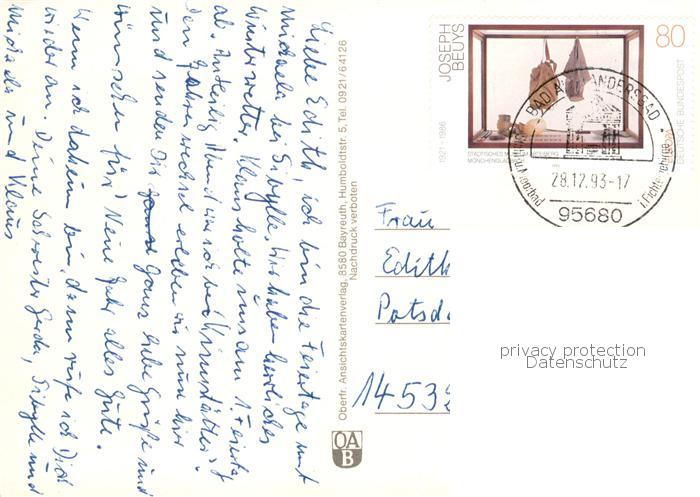 Liebe Edith, ich bin die Feiertage mit
Michaela bei Sibylle. Wir haben herrliches
Winterwetter. Klaus holte uns am 1. Feiertag
ab. Heilig Abend war ich bei
Den Jahreswechsel erleben wir nun hier
und senden Dir ganz liebe Grüße und
wünschen fürs Neue Jahr alles Gute.
Wenn ich daheim bin, dann rufe ich Dich
wieder an. Deine Schwester Gerda, Sibylle und
Michaela und Klaus
Oberfr. Ansichtskartenverlag, 8580 Bayreuth, Humboldtstr. 5, Tel. 0921/64126
Nachdruck verboten
OA
B
JOSEPH
BEUYS
1921-1986
80
DEUTSCHE BUNDESPOST
STÄDTISCHES
MÖNCHENGLADBACH
BAD ALEXANDERSBAD
28.12.93-17
i. Fichtelgebirge
95680
Frau
Edith
Potsd
14532
privacy protection
Datenschutz